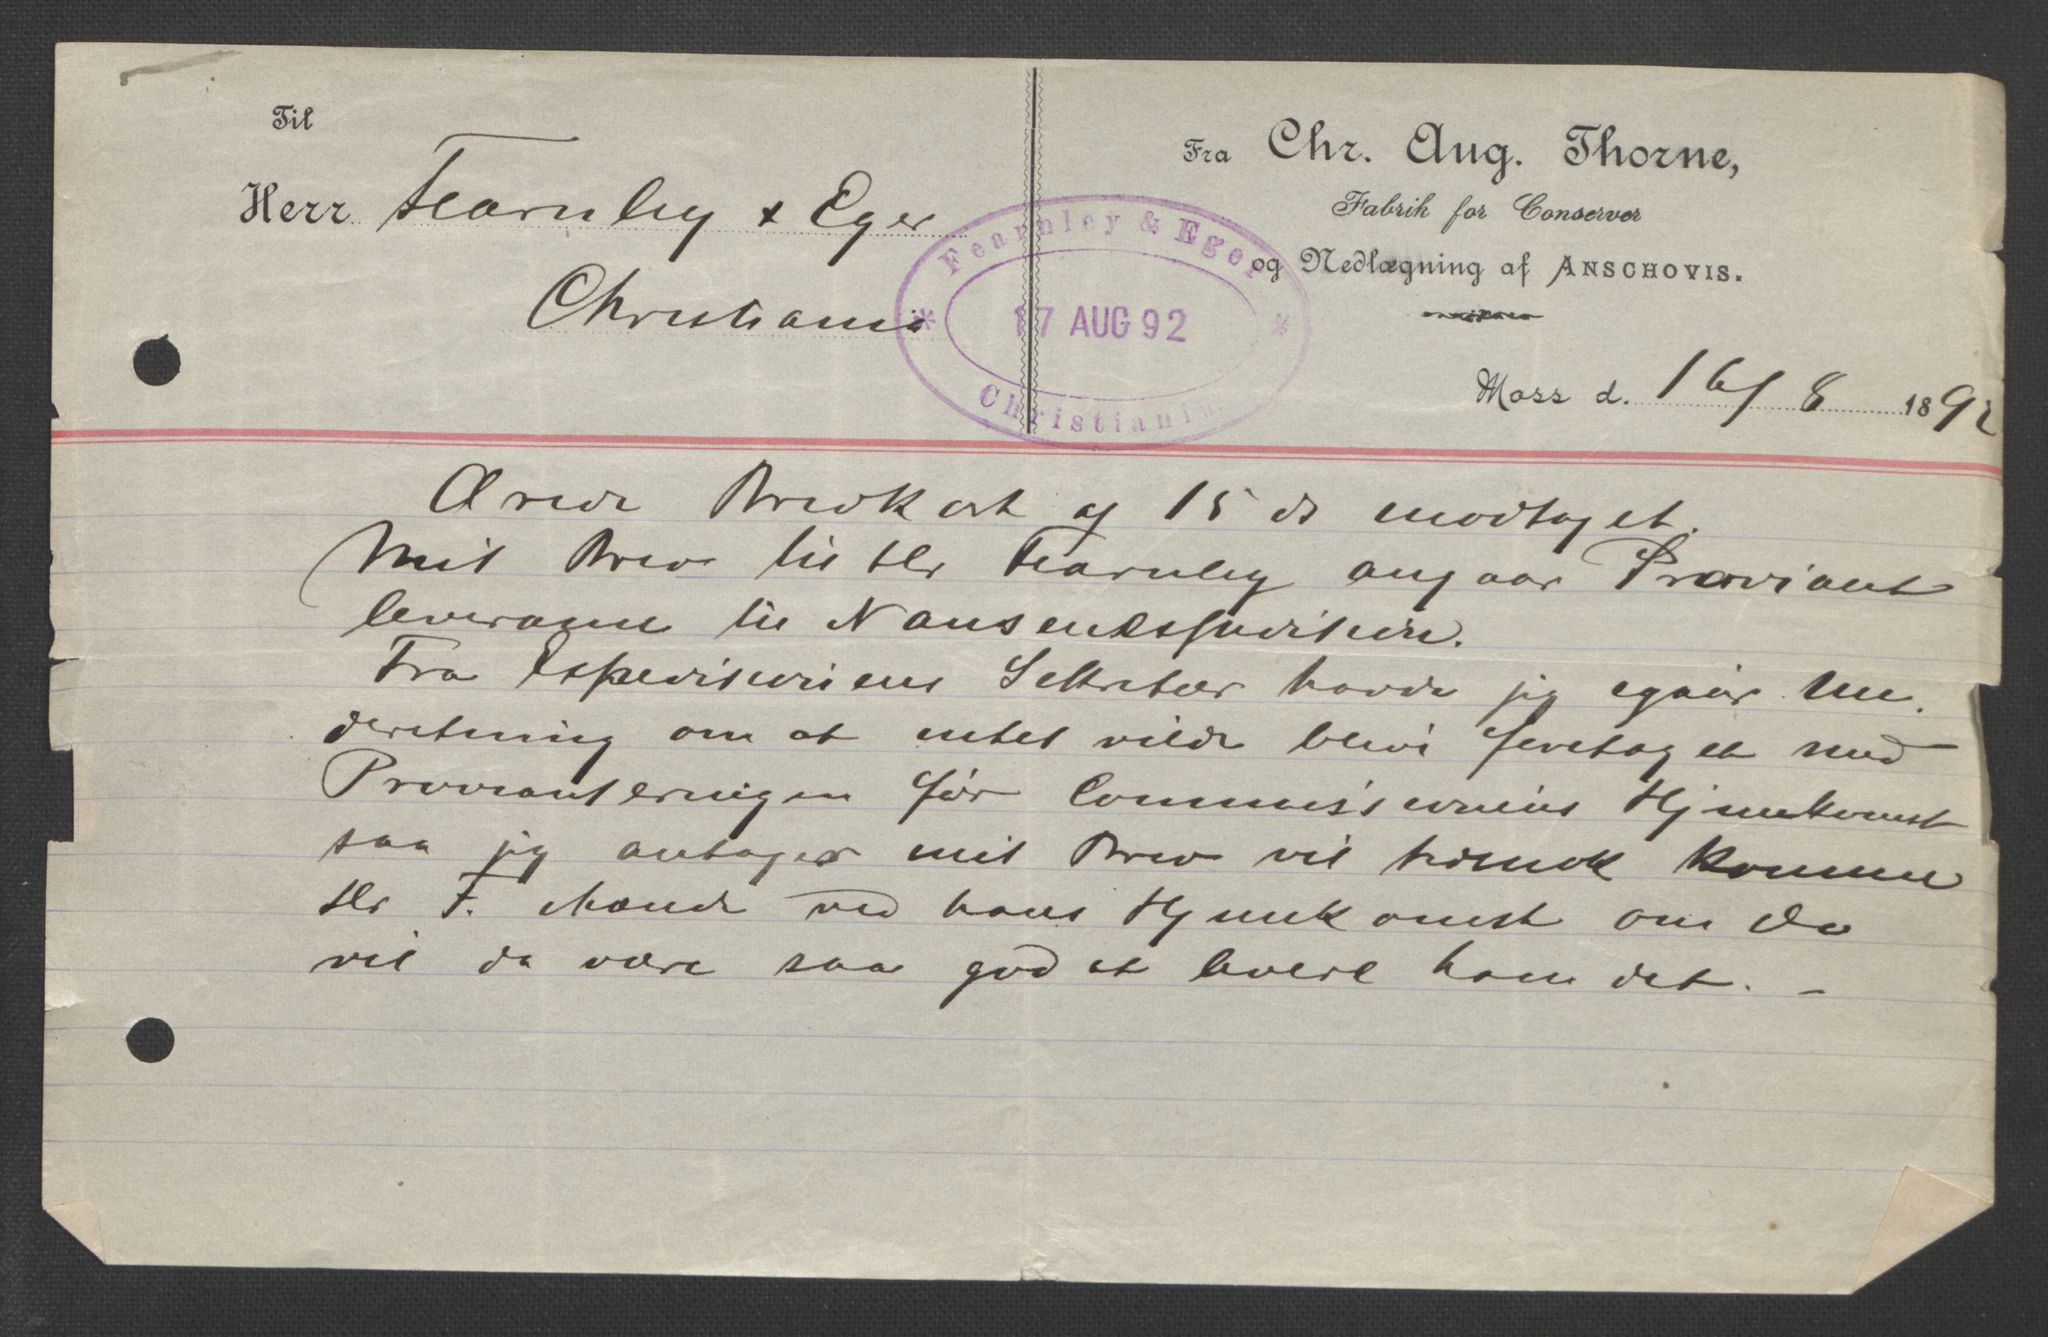 Til
Herr Fearnley & Eger
Christiania
Fra Chr. Aug. Thorne,
Fabrik for Conserver
og Nedlægning af ANSCHOVIS.
Moss d. 16/8 1892
Fearnley & Eger
17 AUG 92
Christiania
Ærede Brevkort af 15 ds modtaget.
Mit Brev til Hr Fearnley angaar Proviant
leverance til Nansenexpeditionen.
Fra Expeditionens Sekretær havde jeg igaar Un
derretning om at intet vilde blive foretaget med
Provianteringen før Commissionens Hjemkomst
saa jeg antager mit Brev vil tidsnok komme
Hr F. ihænde ved hans Hjemkomst om De
vil da være saa god at levere ham det. –